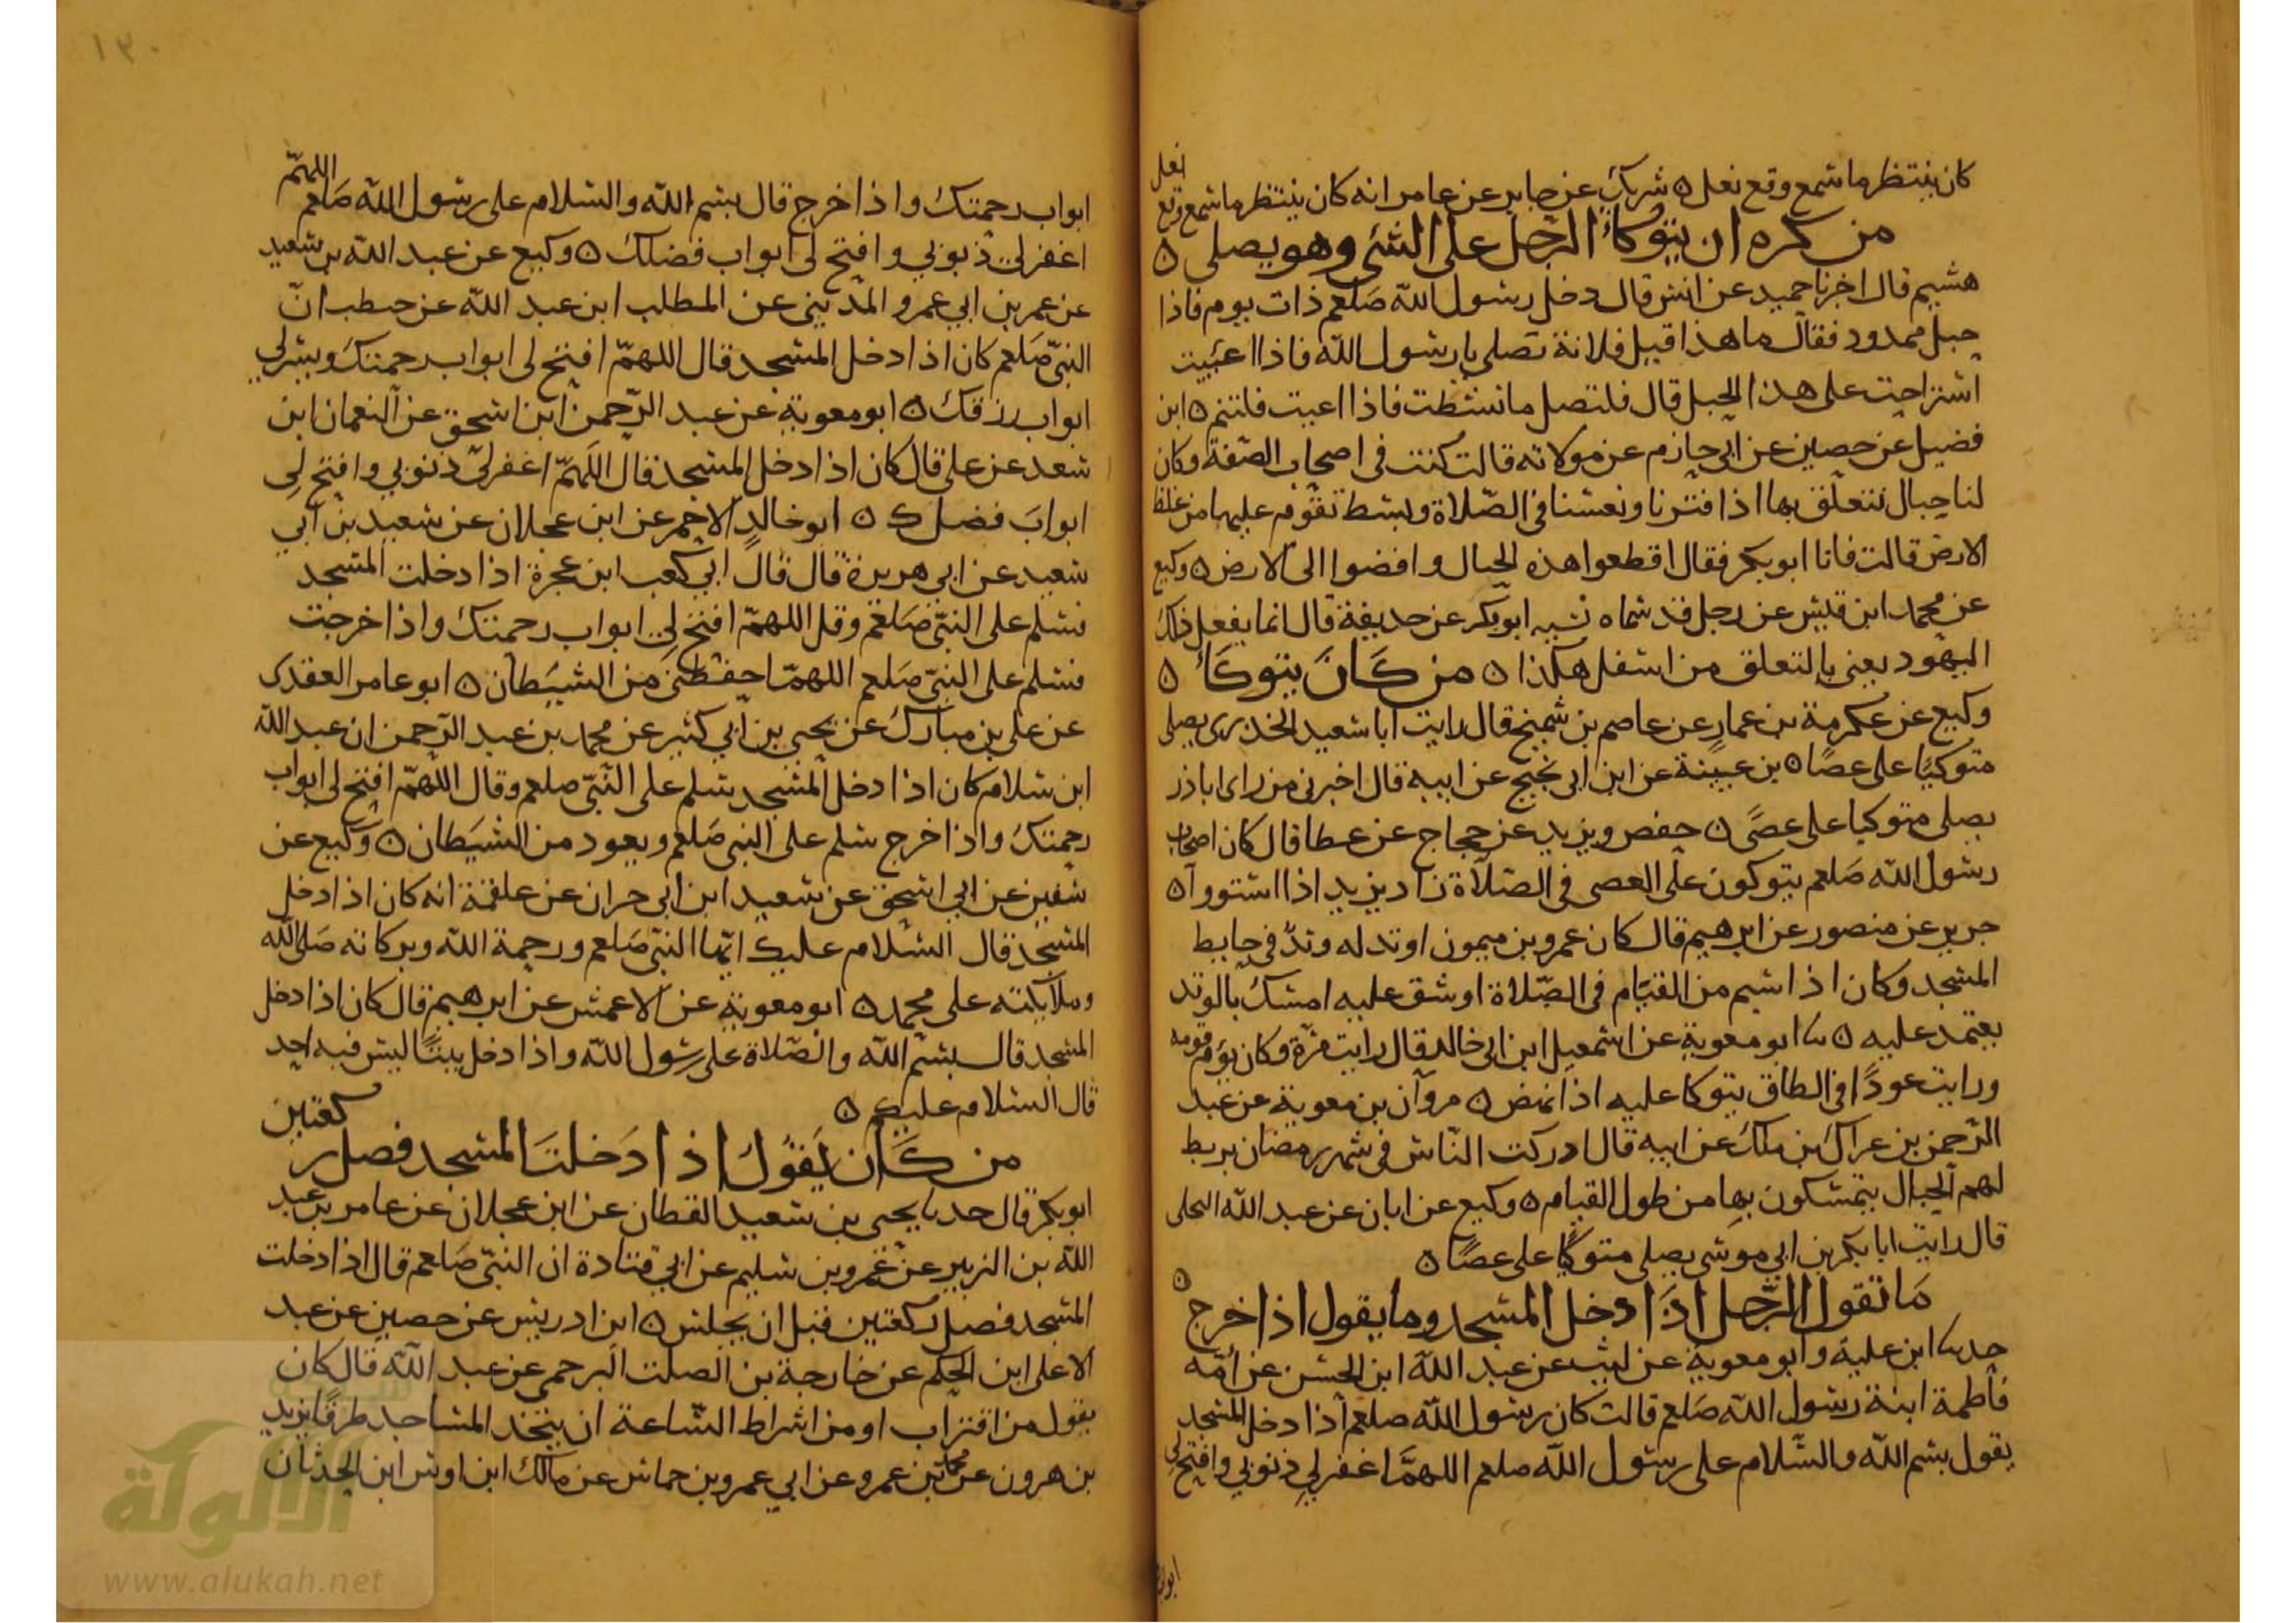 كان ينتظر ما سمع وقع نعل ه شريك عن جابر عن عامر انه كان ينتظر ما سمع وقع نعل
من كره ان يتوكأ الرجل على الشئ وهو يصلي ه
هشيم قال اخبرنا حميد عن انس قال دخل رسول الله صلعم ذات يوم فاذا
حبل ممدود فقال ما هذا قيل فلانة تصلي يا رسول الله فاذا اعييت
استراحت على هذا الحبل قال فلتصل ما نشطت فاذا اعيت فلتنم ه ابن
فضيل عن حصين عن ابي حازم عن مولاته قالت كنت في اصحاب الصفة وكان
لنا حبال نتعلق بها اذا فترنا ونعسنا في الصلاة وبسط نقوم عليها من غلظ
الارض قالت فاتا ابو بكر فقال اقطعوا هذه الحبال وافضوا الى الارض ه وكيع
عن محمد ابن قيس عن رجل قد سماه نسيه ابو بكر عن حذيفة قال انما يفعل ذلك
اليهود يعني بالتعلق من اسفل هكذا ه من كان يتوكأ ه
وكيع عن عكرمة بن عمار عن عاصم بن شميخ قال رايت ابا سعيد الخدري يصلي
متوكيا على عصا ه بن عيينة عن ابن ابي نجيح عن ابيه قال اخبرني من راى ابا ذر
يصلي متوكيا على عصى ه حفص ويزيد عن حجاج عن عطا قال كان اصحاب
رسول الله صلعم يتوكون على العصى في الصلاة زاد يزيد اذا استووا ه
جرير عن منصور عن ابرهيم قال كان عمرو بن ميمون اوتد له وتد في حايط
المسجد وكان اذا سيم من القيام في الصلاة او شق عليه امسك بالوتد
يعتمد عليه ه ثنا ابو معوية عن اسمعيل ابن ابي خالد قال رايت مرة وكان يؤم قومه
ورايت عودا في الطاق يتوكا عليه اذا نهض ه مروان بن معوية عن عبد
الرحمن بن عراك بن ملك عن ابيه قال ادركت الناس في شهر رمضان يربط
لهم الحبال يتمسكون بها من طول القيام ه وكيع عن ابان عن عبد الله البجلي
قال رايت ابا بكر بن ابي موسى يصلي متوكيا على عصا ه
ما تقول الرجل اذا دخل المسجد وما يقول اذا خرج ه
حدثنا ابن علية وابو معوية عن ليث عن عبد الله ابن الحسن عن امه
فاطمة ابنة رسول الله صلعم قالت كان رسول الله صلعم اذا دخل المسجد
يقول بسم الله والسلام على رسول الله صلعم اللهم اغفر لي ذنوبي وافتح لي
ابواب
١٣٠
ابواب رحمتك واذا خرج قال بسم الله والسلام على رسول الله صلعم اللهم
اغفر لي ذنوبي وافتح لي ابواب فضلك ه وكيع عن عبد الله بن سعيد
عن عمر بن ابي عمرو المديني عن المطلب ابن عبد الله عن حطب ان
النبي صلعم كان اذا دخل المسجد قال اللهم افتح لي ابواب رحمتك ويسر لي
ابواب رزقك ه ابو معوية عن عبد الرحمن ابن اسحق عن النعمان ابن
سعد عن علي قال كان اذا دخل المسجد قال اللهم اغفر لي ذنوبي وافتح لي
ابواب فضلك ه ابو خالد الاحمر عن ابن عجلان عن سعيد بن ابي
سعيد عن ابي هريرة قال قال ابي كعب ابن عجرة اذا دخلت المسجد
فسلم على النبي صلعم وقل اللهم افتح لي ابواب رحمتك واذا خرجت
فسلم على النبي صلعم اللهم احفظني من الشيطان ه ابو عامر العقدي
عن علي بن مبارك عن يحيى بن ابي كثير عن محمد بن عبد الرحمن ان عبد الله
ابن سلام كان اذا دخل المسجد سلم على النبي صلعم وقال اللهم افتح لي ابواب
رحمتك واذا خرج سلم على النبي صلعم ويعوذ من الشيطان ه وكيع عن
سفين عن ابي اسحق عن سعيد ابن ابي حران عن علقمة انه كان اذا دخل
المسجد قال السلام عليك ايها النبي صلعم ورحمة الله وبركاته صلى الله
وملايكته على محمد ه ابو معوية عن الاعمش عن ابرهيم قال كان اذا دخل
المسجد قال بسم الله والصلاة على رسول الله واذا دخل بيتا ليس فيه احد
قال السلام عليكم ه
من كان يقول اذا دخلت المسجد فصل ركعتين
ابو بكر قال حدثنا يحيى بن سعيد القطان عن ابن عجلان عن عامر بن عبد
الله بن الزبير عن عمرو بن سليم عن ابي قتادة ان النبي صلعم قال اذا دخلت
المسجد فصل ركعتين قبل ان يجلس ه ابن ادريس عن حصين عن عبد
الاعلى ابن الحكم عن خارجة بن الصلت البرجمي عن عبد الله قال كان
يقول من اقتراب او من اشراط الساعة ان يتخذ المساجد طرقا يزيد
بن هرون عن محمد بن عمرو عن ابي عمرو بن حماس عن مالك ابن اوس ابن الحدثان
شبكة
الألوكة
www.alukah.net